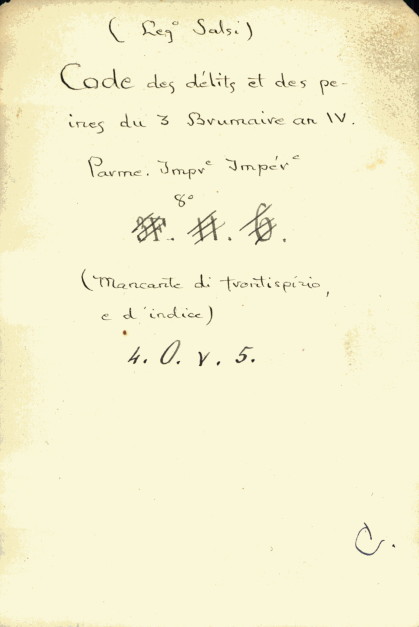 (Legº Salsi)
Code des délits et des pe-
ines du 3 Brumaire an IV.
Parme. Imprᵉ Impérᵉ
8º
(Mancante di frontispizio,
e d'indice)
4. O. v. 5.
C.